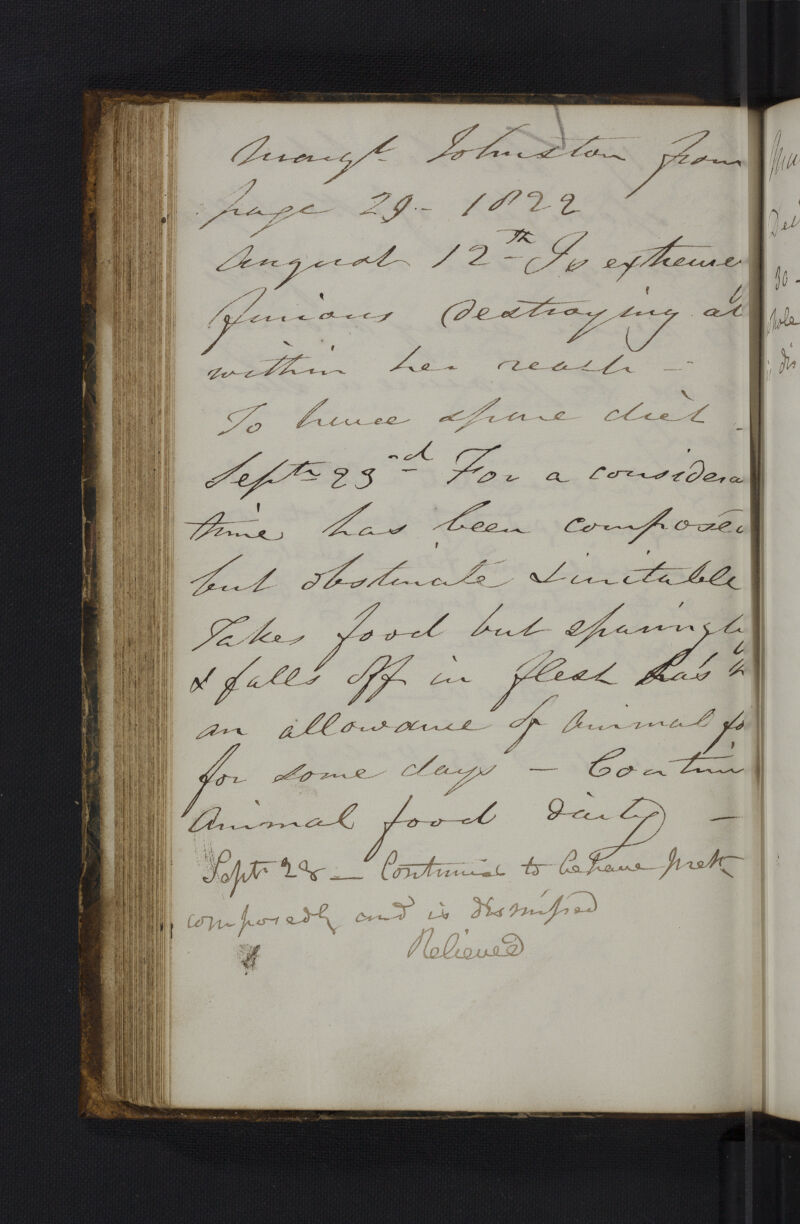 Margt Johnston from
page 29 - 1822
August 12th Is extreme
furious destroying al
within her reach -
To have spare diet -
Septr 23d For a considera
time has been compose
but obstinate & irritable
Takes food but sparingly
& falls off in flesh has
an allowance of Animal fo
for some days - Contin
Animal food daily -
Septr 28 - Continues to behave prett
composedly and is dismissed
Relieved